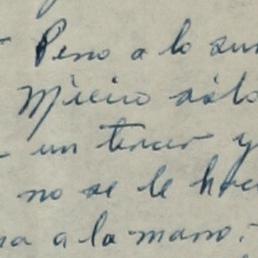 - Peno a lo sum
Micio sólo
- un tercer y
no se le hac
na a la mano.